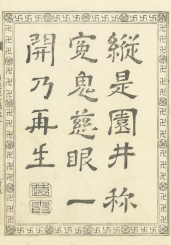 縱是園井称
寃鬼慈眼一
開乃再生